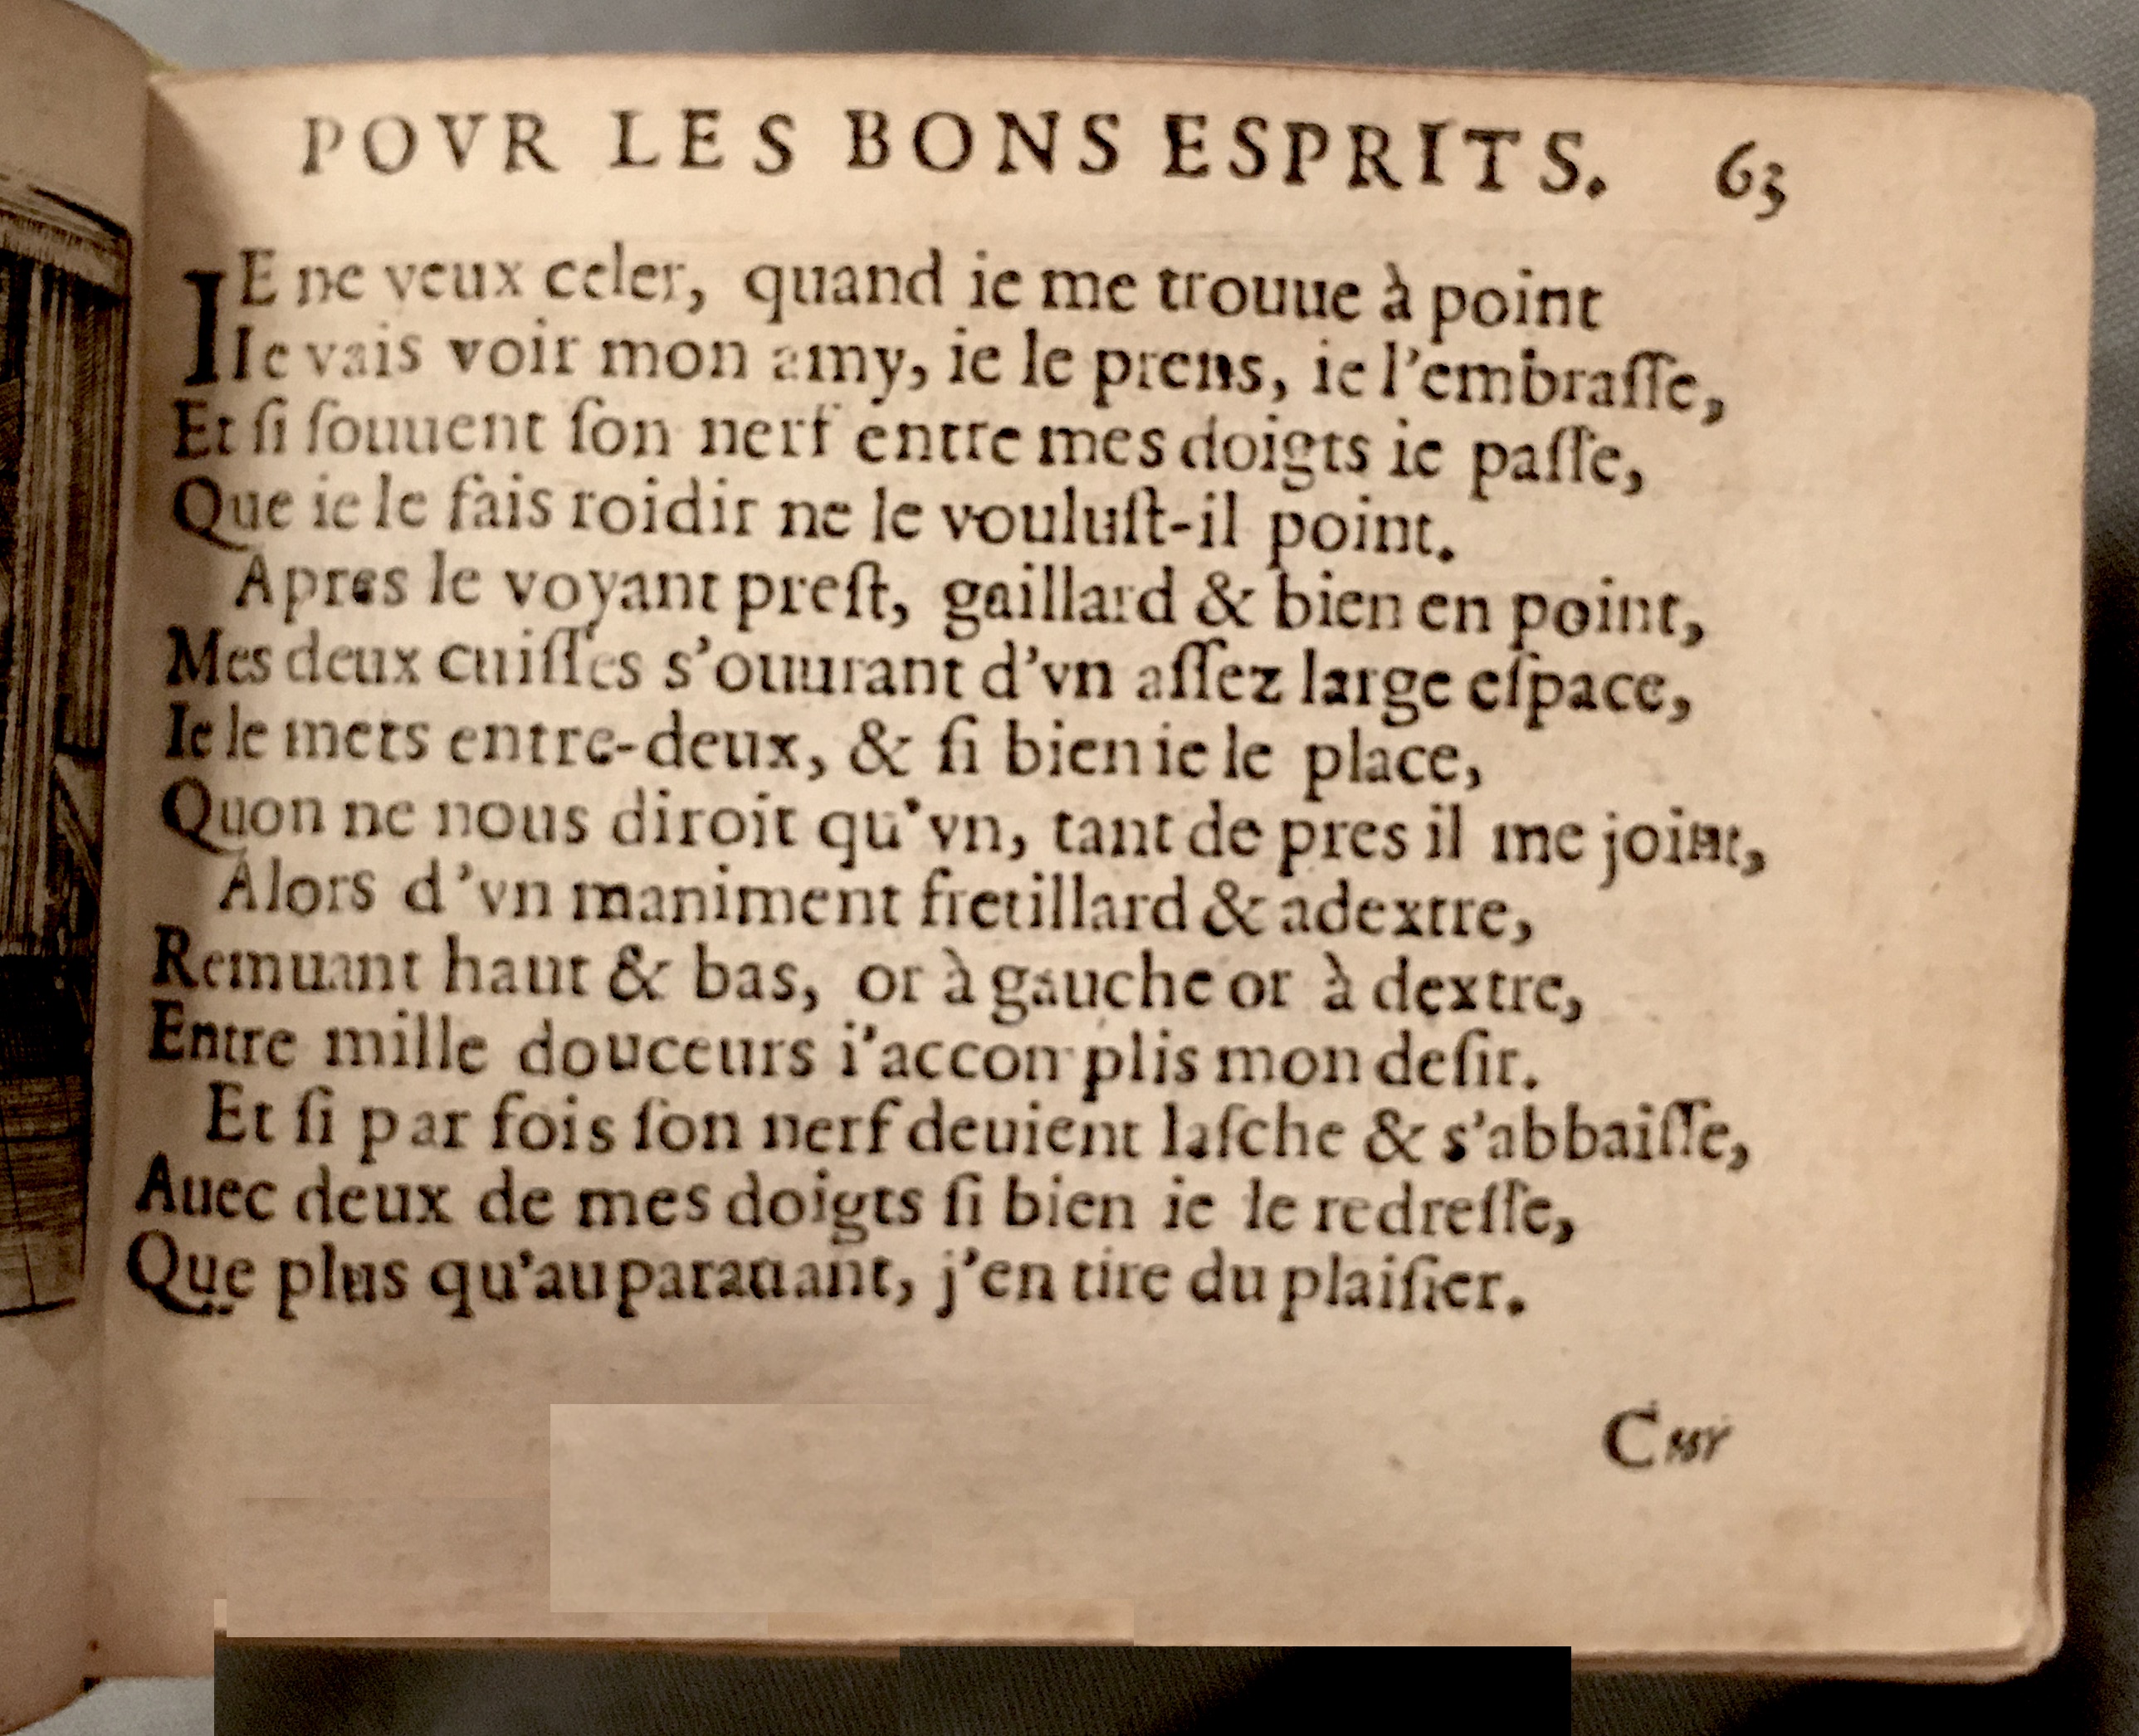 POVR LES BONS ESPRITS. 63
IE ne veux celer, quand ie me trouue à point
Ie vais voir mon amy, ie le prens, ie l'embraſſe,
Et ſi ſouuent ſon nerf entre mes doigts ie paſſe,
Que ie le fais roidir ne le vouluſt-il point.
Apres le voyant preſt, gaillard & bien en point,
Mes deux cuiſſes s'ouurant d'vn aſſez large eſpace,
Ie le mets entre-deux, & ſi bien ie le place,
Quon ne nous diroit qu'vn, tant de pres il me joint,
Alors d'vn maniment fretillard & adextre,
Remuant haut & bas, or à gauche or à dextre,
Entre mille douceurs i'accomplis mon deſir.
Et ſi par fois ſon nerf deuient laſche & s'abbaiſſe,
Auec deux de mes doigts ſi bien ie le redreſſe,
Que plus qu'auparauant, j'en tire du plaiſier.